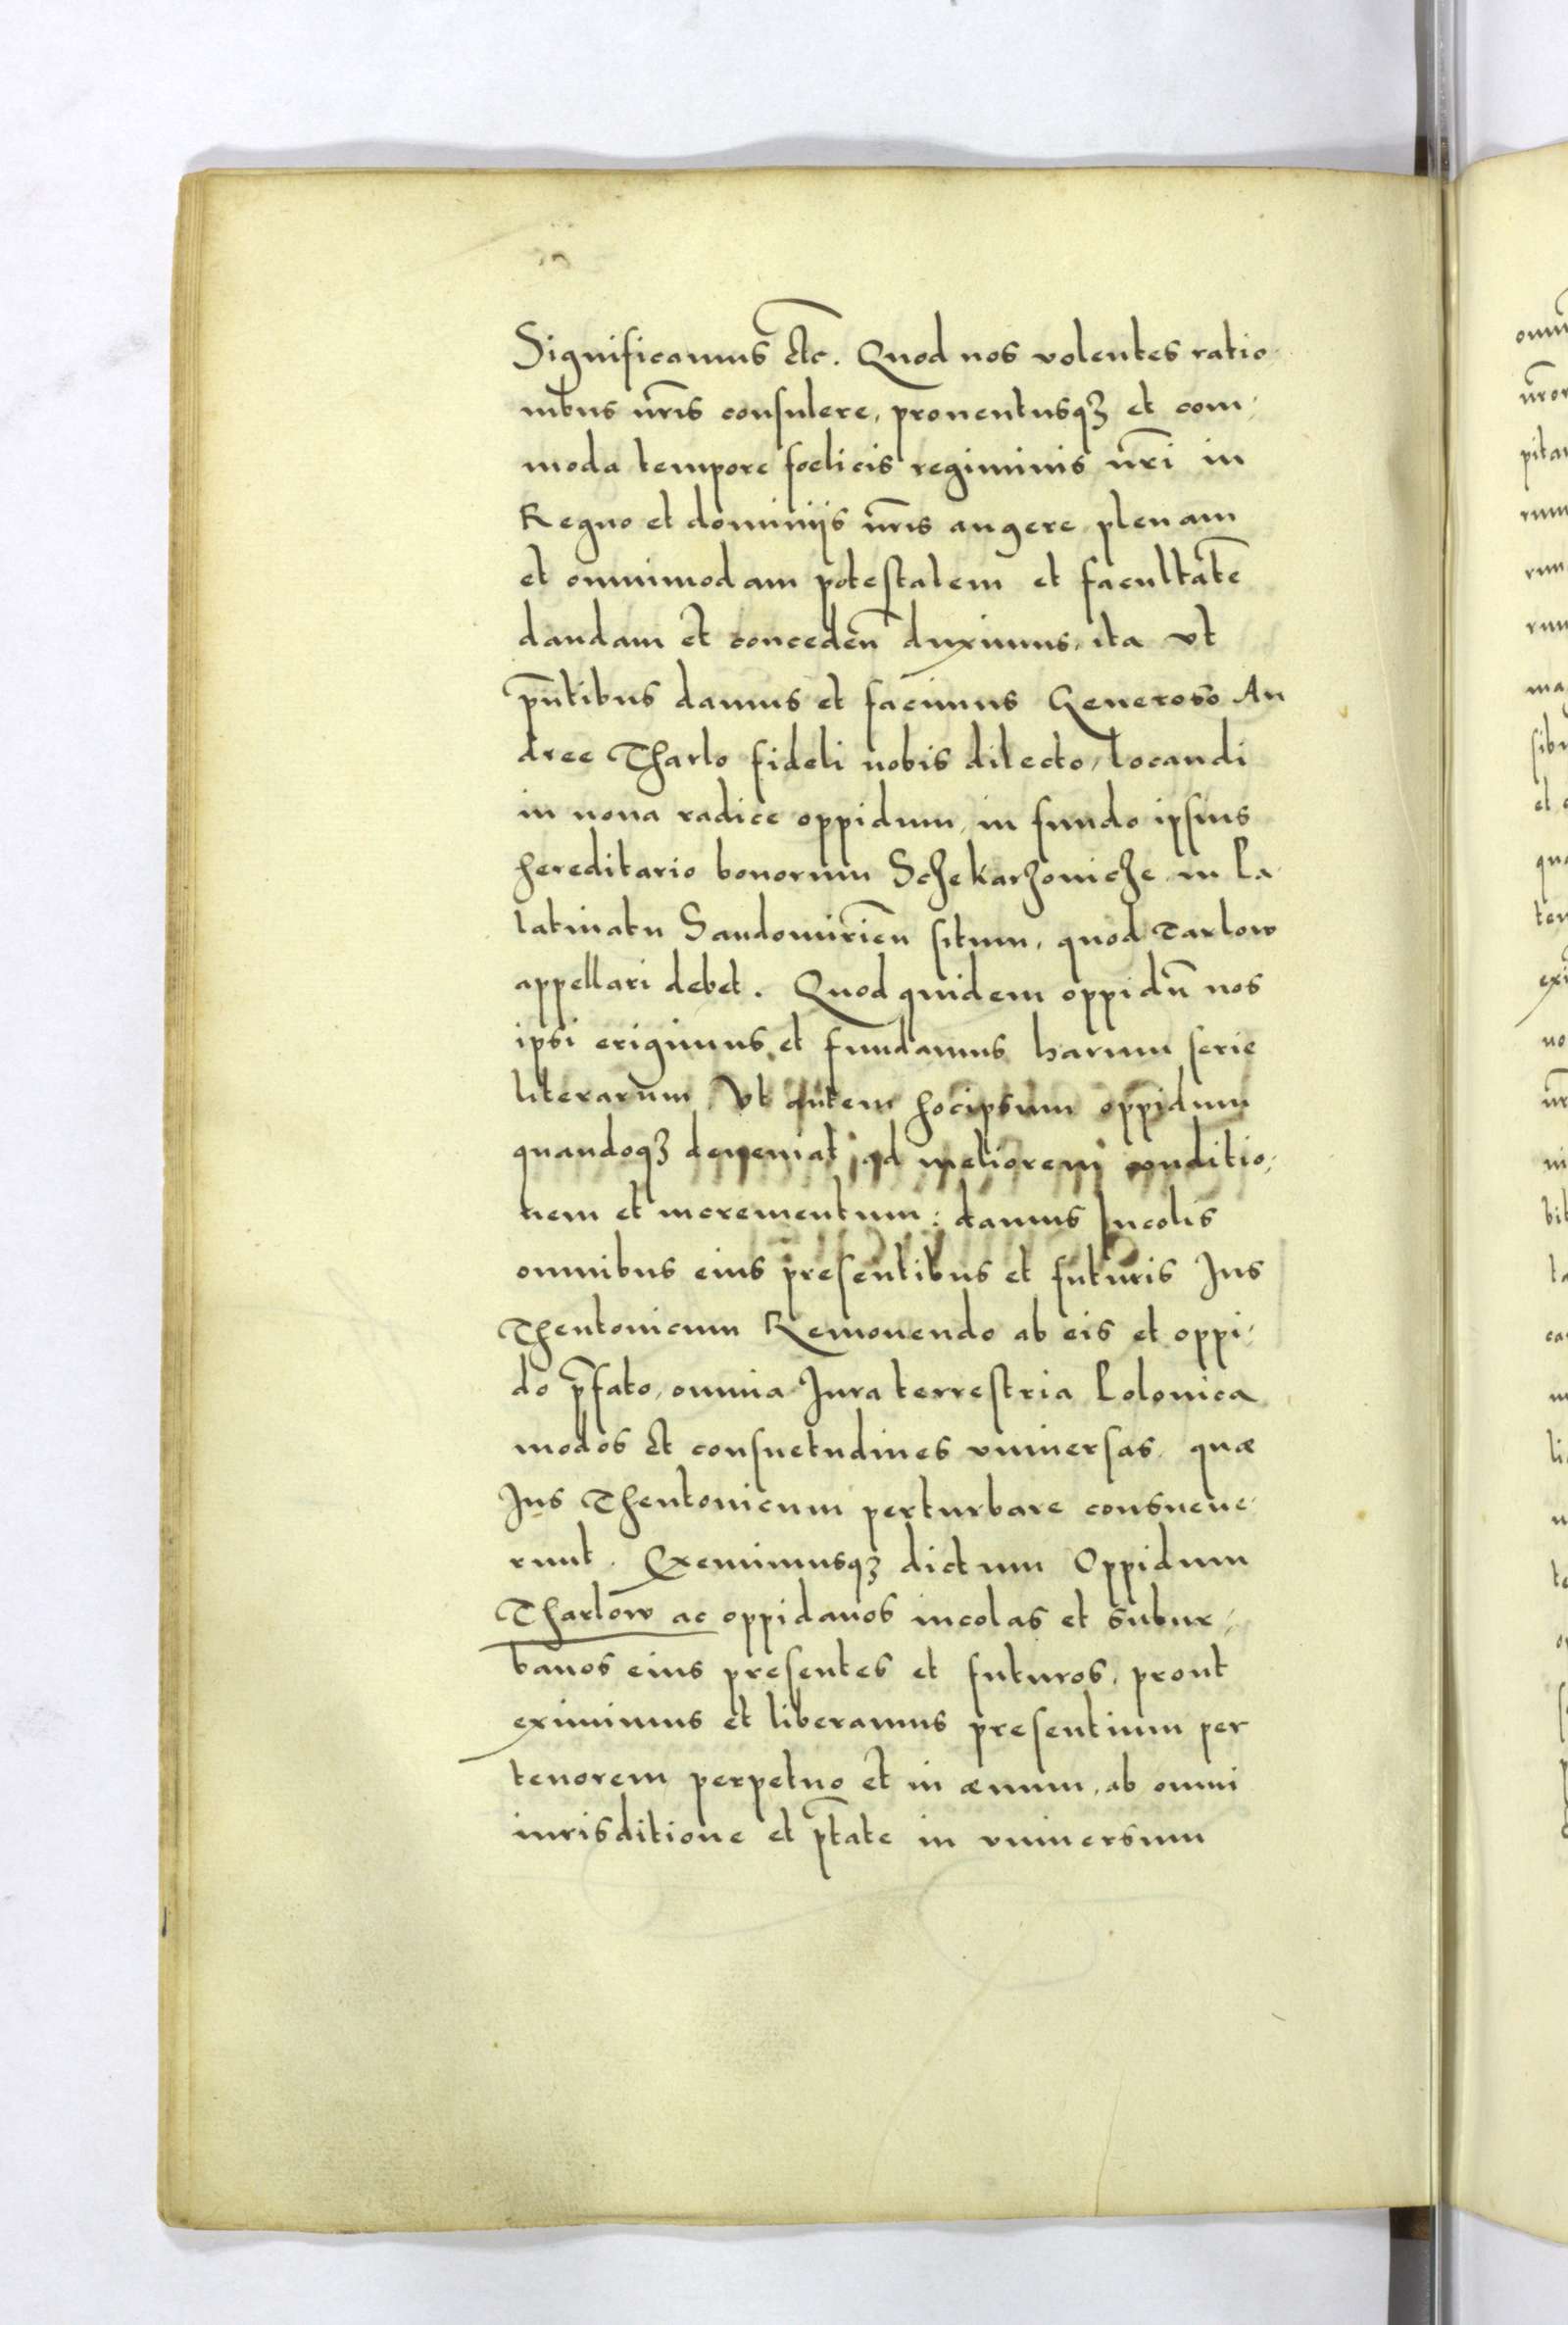 Significamus etc. Quod nos volentes ratio-
nibus nr̃is consulere, prouentusqꝫ et com-
moda tempore foelicis regiminis nr̃i in
Regno et dominijs nr̃is augere plenam
et omnimodam potestatem et facultatẽ
dandam et concedeñ duximus, ita vt
pñtibus damus et facimus Generoso An
dree Tharlo fideli nobis dilecto, locandi
in noua radice oppidum, in fundo ipsius
hereditario bonorum Sczekarzouicze in Pa-
latinatu Sandomirieñ situm, quod Tarlow
appellari debet. Quod quidem oppidũ nos
ipsi erigimus et fundamus harum serie
literarum, Vt autem hocipsum oppidum
quandoqꝫ deueniat ad meliorem conditio-
nem et incrementum: damus Incolis
omnibus eius presentibus et futuris Jus
Theutonicum Remouendo ab eis et oppi-
do p̃fato, omnia Jura terrestria Polonica
modos et consuetudines vniuersas, quæ
Jus Theutonicum perturbare consueue-
runt. Exemimusqꝫ dictum Oppidum
Tharlow ac oppidanos incolas et subur-
banos eius presentes et futuros, prout
eximimus et liberamus presentium per
tenorem perpetuo et in æuum, ab omni
iurisditione et ptãte in vniuersum